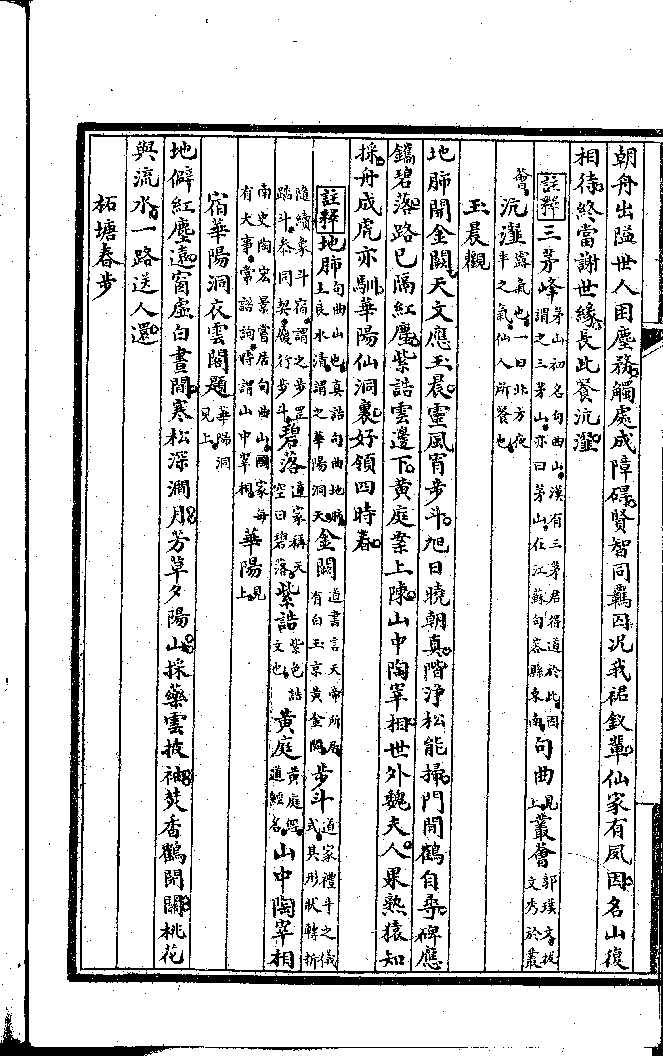 朝舟出隘世人困塵務觸處成障礙賢智同羈囚況我裙釵輩仙家有夙因名山復
相待終當謝世緣長此餐沆瀣
註釋三茅峰茅山初名句曲山漢有三茅君得道於此因謂之三茅山亦曰茅山在江蘇句容縣東南句曲見上叢薈郭璞文拔文秀於叢
薈沆瀣露氣也一曰北方夜半之氣仙人所餐也
玉晨觀
地肺開金闕天文應玉晨靈風宵步斗旭日曉朝真階淨松能掃門閒鶴自尋碑應
鐫碧落路已隔紅塵紫誥雲邊下黃庭案上陳山中陶宰相世外魏夫人果熟猿知
採丹成虎亦馴華陽仙洞裏好領四時春
註釋地肺句曲山也真誥句曲地肺土良水清謂之華陽洞天金闕道書言天帝所居有白玉京黃金闕步斗道家禮斗之儀式其形狀轉折
隨續象斗宿謂之步罡踏斗參同契履行步斗碧落道家稱天空曰碧落紫誥紫色誥文也黃庭黃庭經道經名山中陶宰相
南史陶宏景嘗居句曲山國家每有大事常諮詢時謂山中宰相華陽見上
宿華陽洞衣雲閣題華陽洞見上
地僻紅塵遠窗虛白晝閒寒松深澗月芳草夕陽山採藥雲披袖焚香鶴閉關桃花
與流水一路送人還
柘塘春步